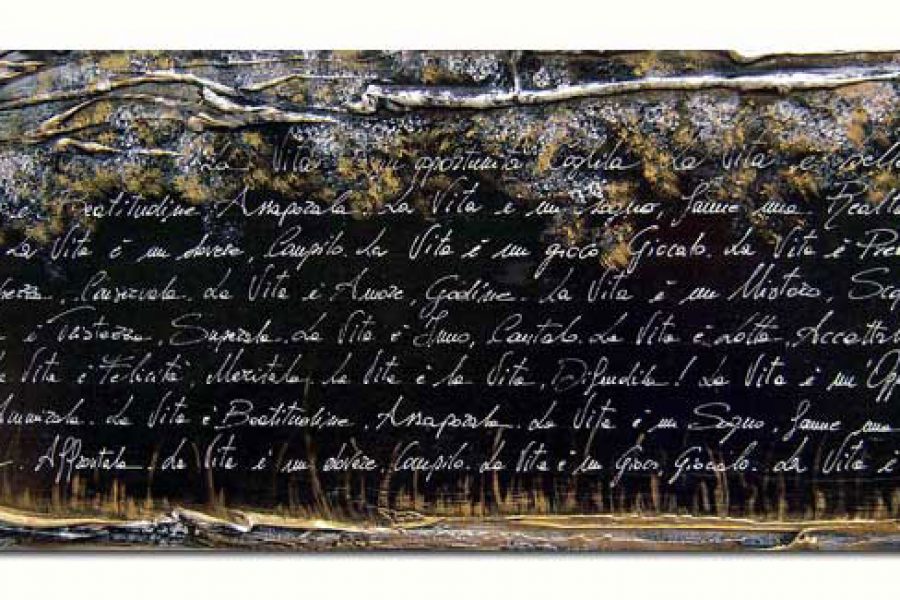 La Vita un opportunità Coglila La Vita è Bell
è Beatitudine, Assaporala. La Vita è un Sogno, fanne una Realt
La Vita è un dovere, Compilo. La Vita è un gioco Giocalo. La Vita è Pre
chezza, Conservala. La Vita è Amore, Godine. La Vita è un Mistero, Scop
è Tristezza, Superala. La Vita è Inno, Cantalo. La Vita è Lotta, Accettal
Vita è Felicità, Meritala, la Vita è la Vita, Difendila! La Vita è un'Opp
Ammirala. La Vita è Beatitudine, Assaporala. La Vita è un Sogno, fanne una
. Affrontala. La Vita è un dovere, Compilo. La Vita è un Gioco, Giocalo. La Vita è